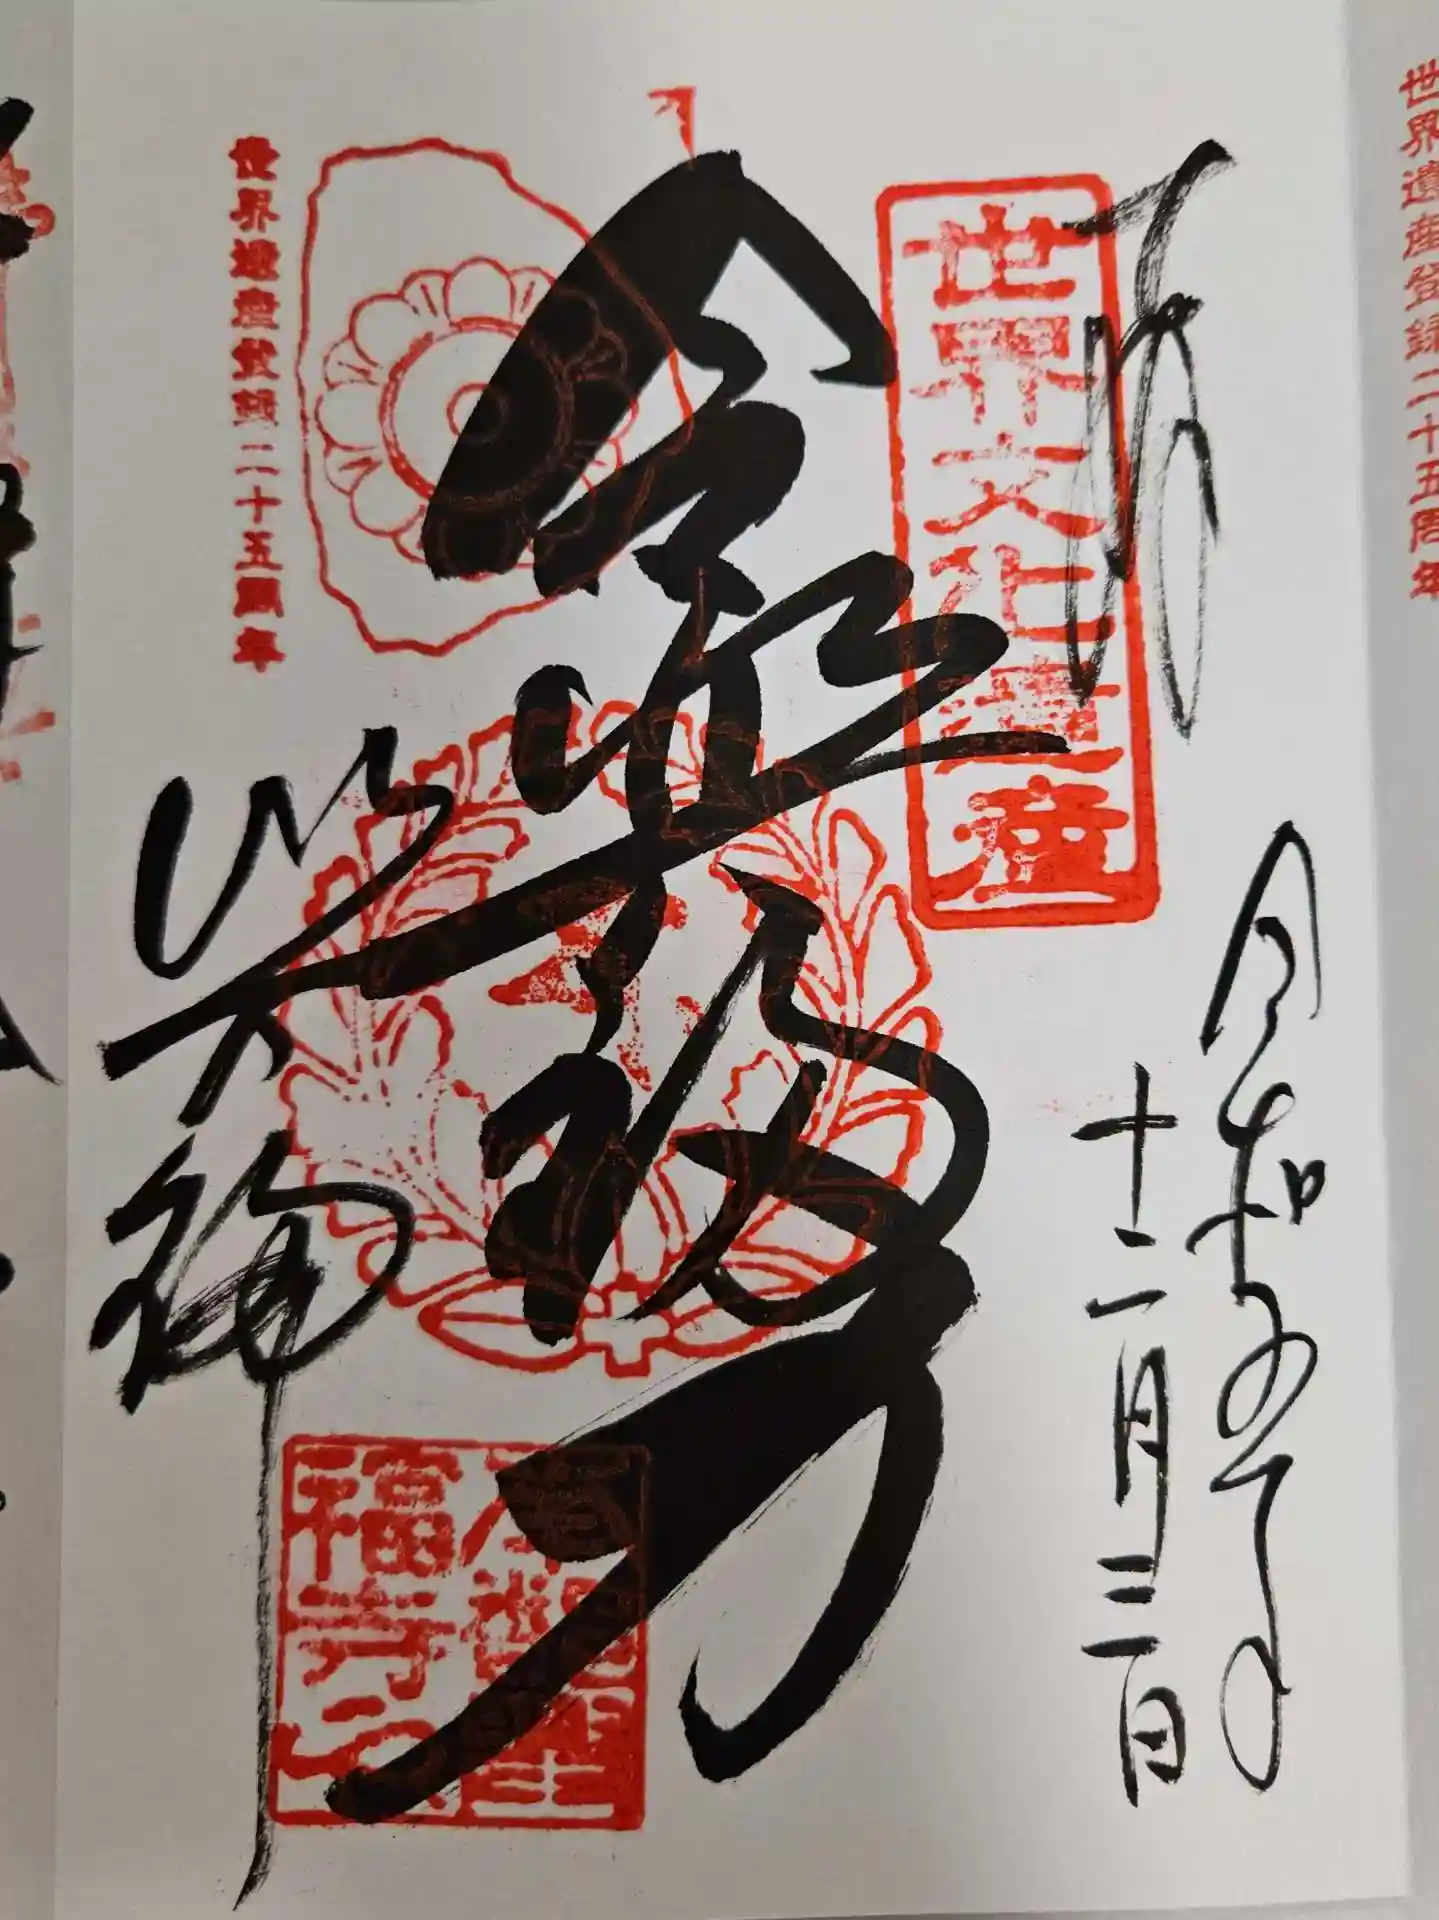 世界遺産登録二十五周年
奉拝
令和五年
十二月三日
世界文化遺産
令興福力
世界遺産登録二十五周年
興福寺